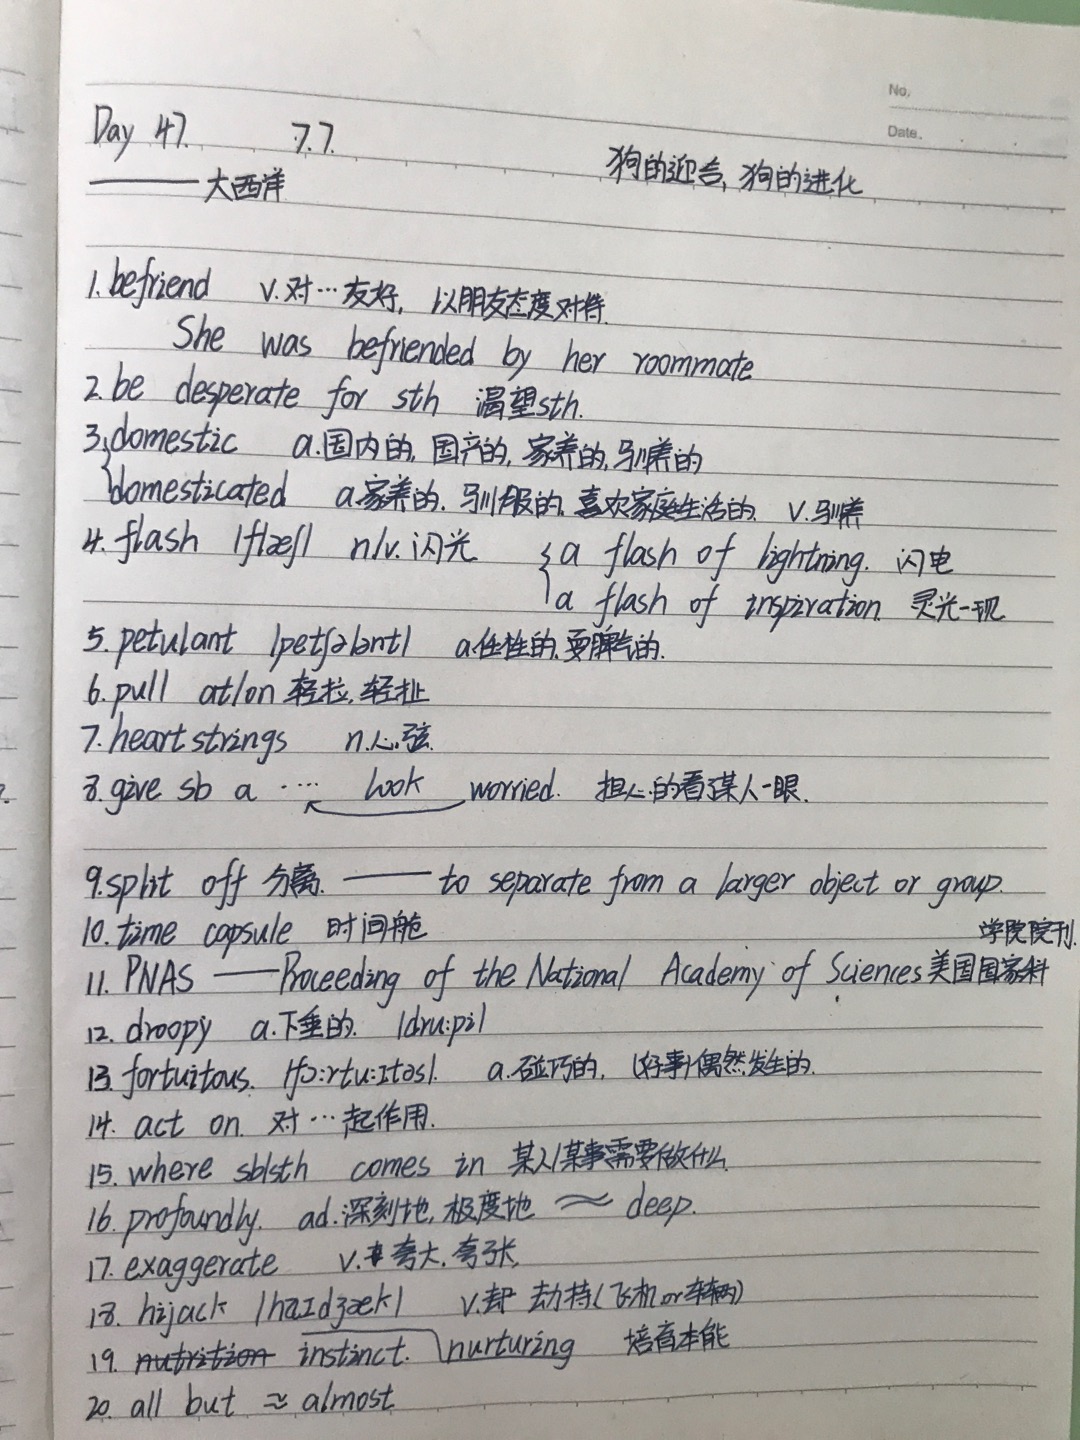 No.
Date.
Day 47. 7.7.
——大西洋 狗的迎合, 狗的进化
1. befriend v. 对…友好, 以朋友态度对待.
She was befriended by her roommate
2. be desperate for sth 渴望sth.
3. domestic a. 国内的, 国产的, 家养的, 驯养的
domesticated a. 家养的, 驯服的, 喜欢家庭生活的. v. 驯养
4. flash |flæʃ| n/v. 闪光 a flash of lightning. 闪电
a flash of inspiration. 灵光一现
5. petulant |petʃələnt| a. 任性的, 耍脾气的.
6. pull at/on 轻拉, 轻扯
7. heart strings n. 心弦.
8. give sb a .... look worried. 担心的看了某人一眼.
9. split off 分离. —— to separate from a larger object or group.
10. time capsule 时间舱 学院院刊.
11. PNAS —— Proceeding of the National Academy of Sciences 美国国家科
12. droopy a. 下垂的. |dru:pi|
13. fortuitous. |fɔ:rtu:ɪtəs|. a. 碰巧的, (好事)偶然发生的.
14. act on. 对…起作用.
15. where sb/sth comes in 某人/某事需要做什么.
16. profoundly. ad. 深刻地, 极度地 ≈ deep.
17. exaggerate v. 夸大, 夸张,
18. hijack |haɪdʒæk| v. 劫持(飞机or车辆)
19. nutrition instinct. nurturing 培育本能
20. all but ≈ almost